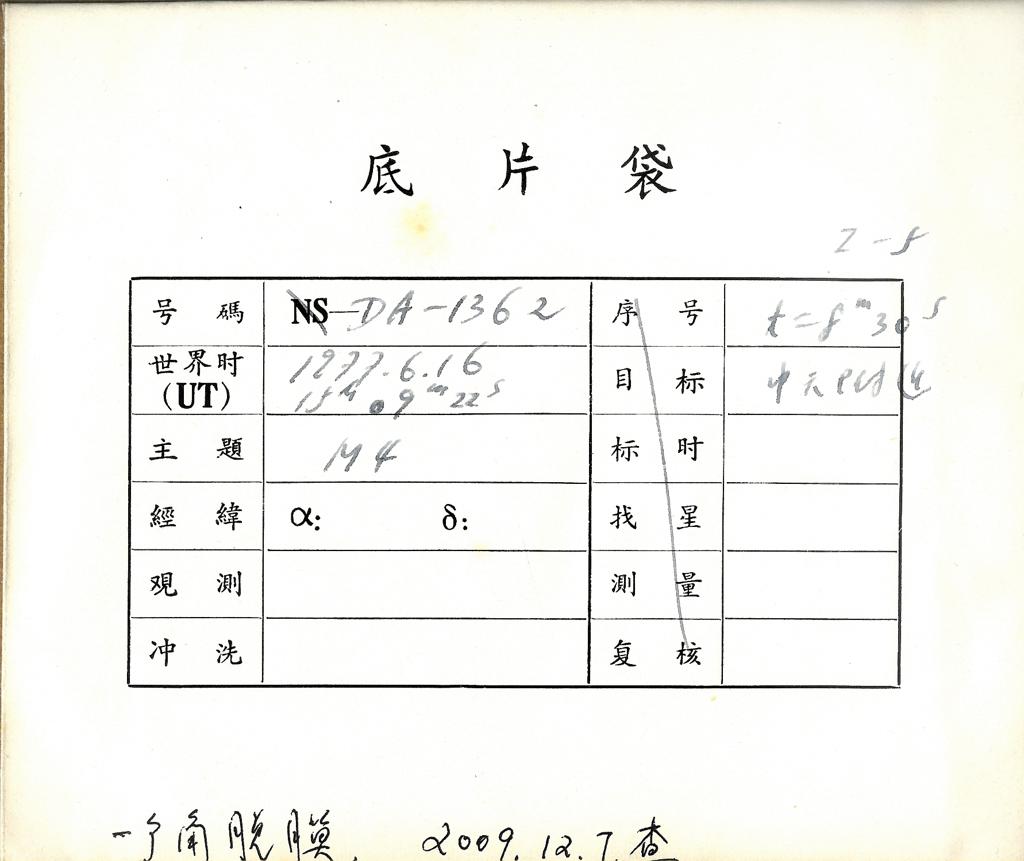 底片袋
号碼 NS—DA-1362 序号 t=8ᵐ30ˢ
世界时(UT) 1977.6.16 目标
15ʰ09ᵐ22ˢ
主題 M4 标时
經緯 α: δ: 找星
观測 測量
冲洗 复核
一角脱膜. 2009.12.7.查